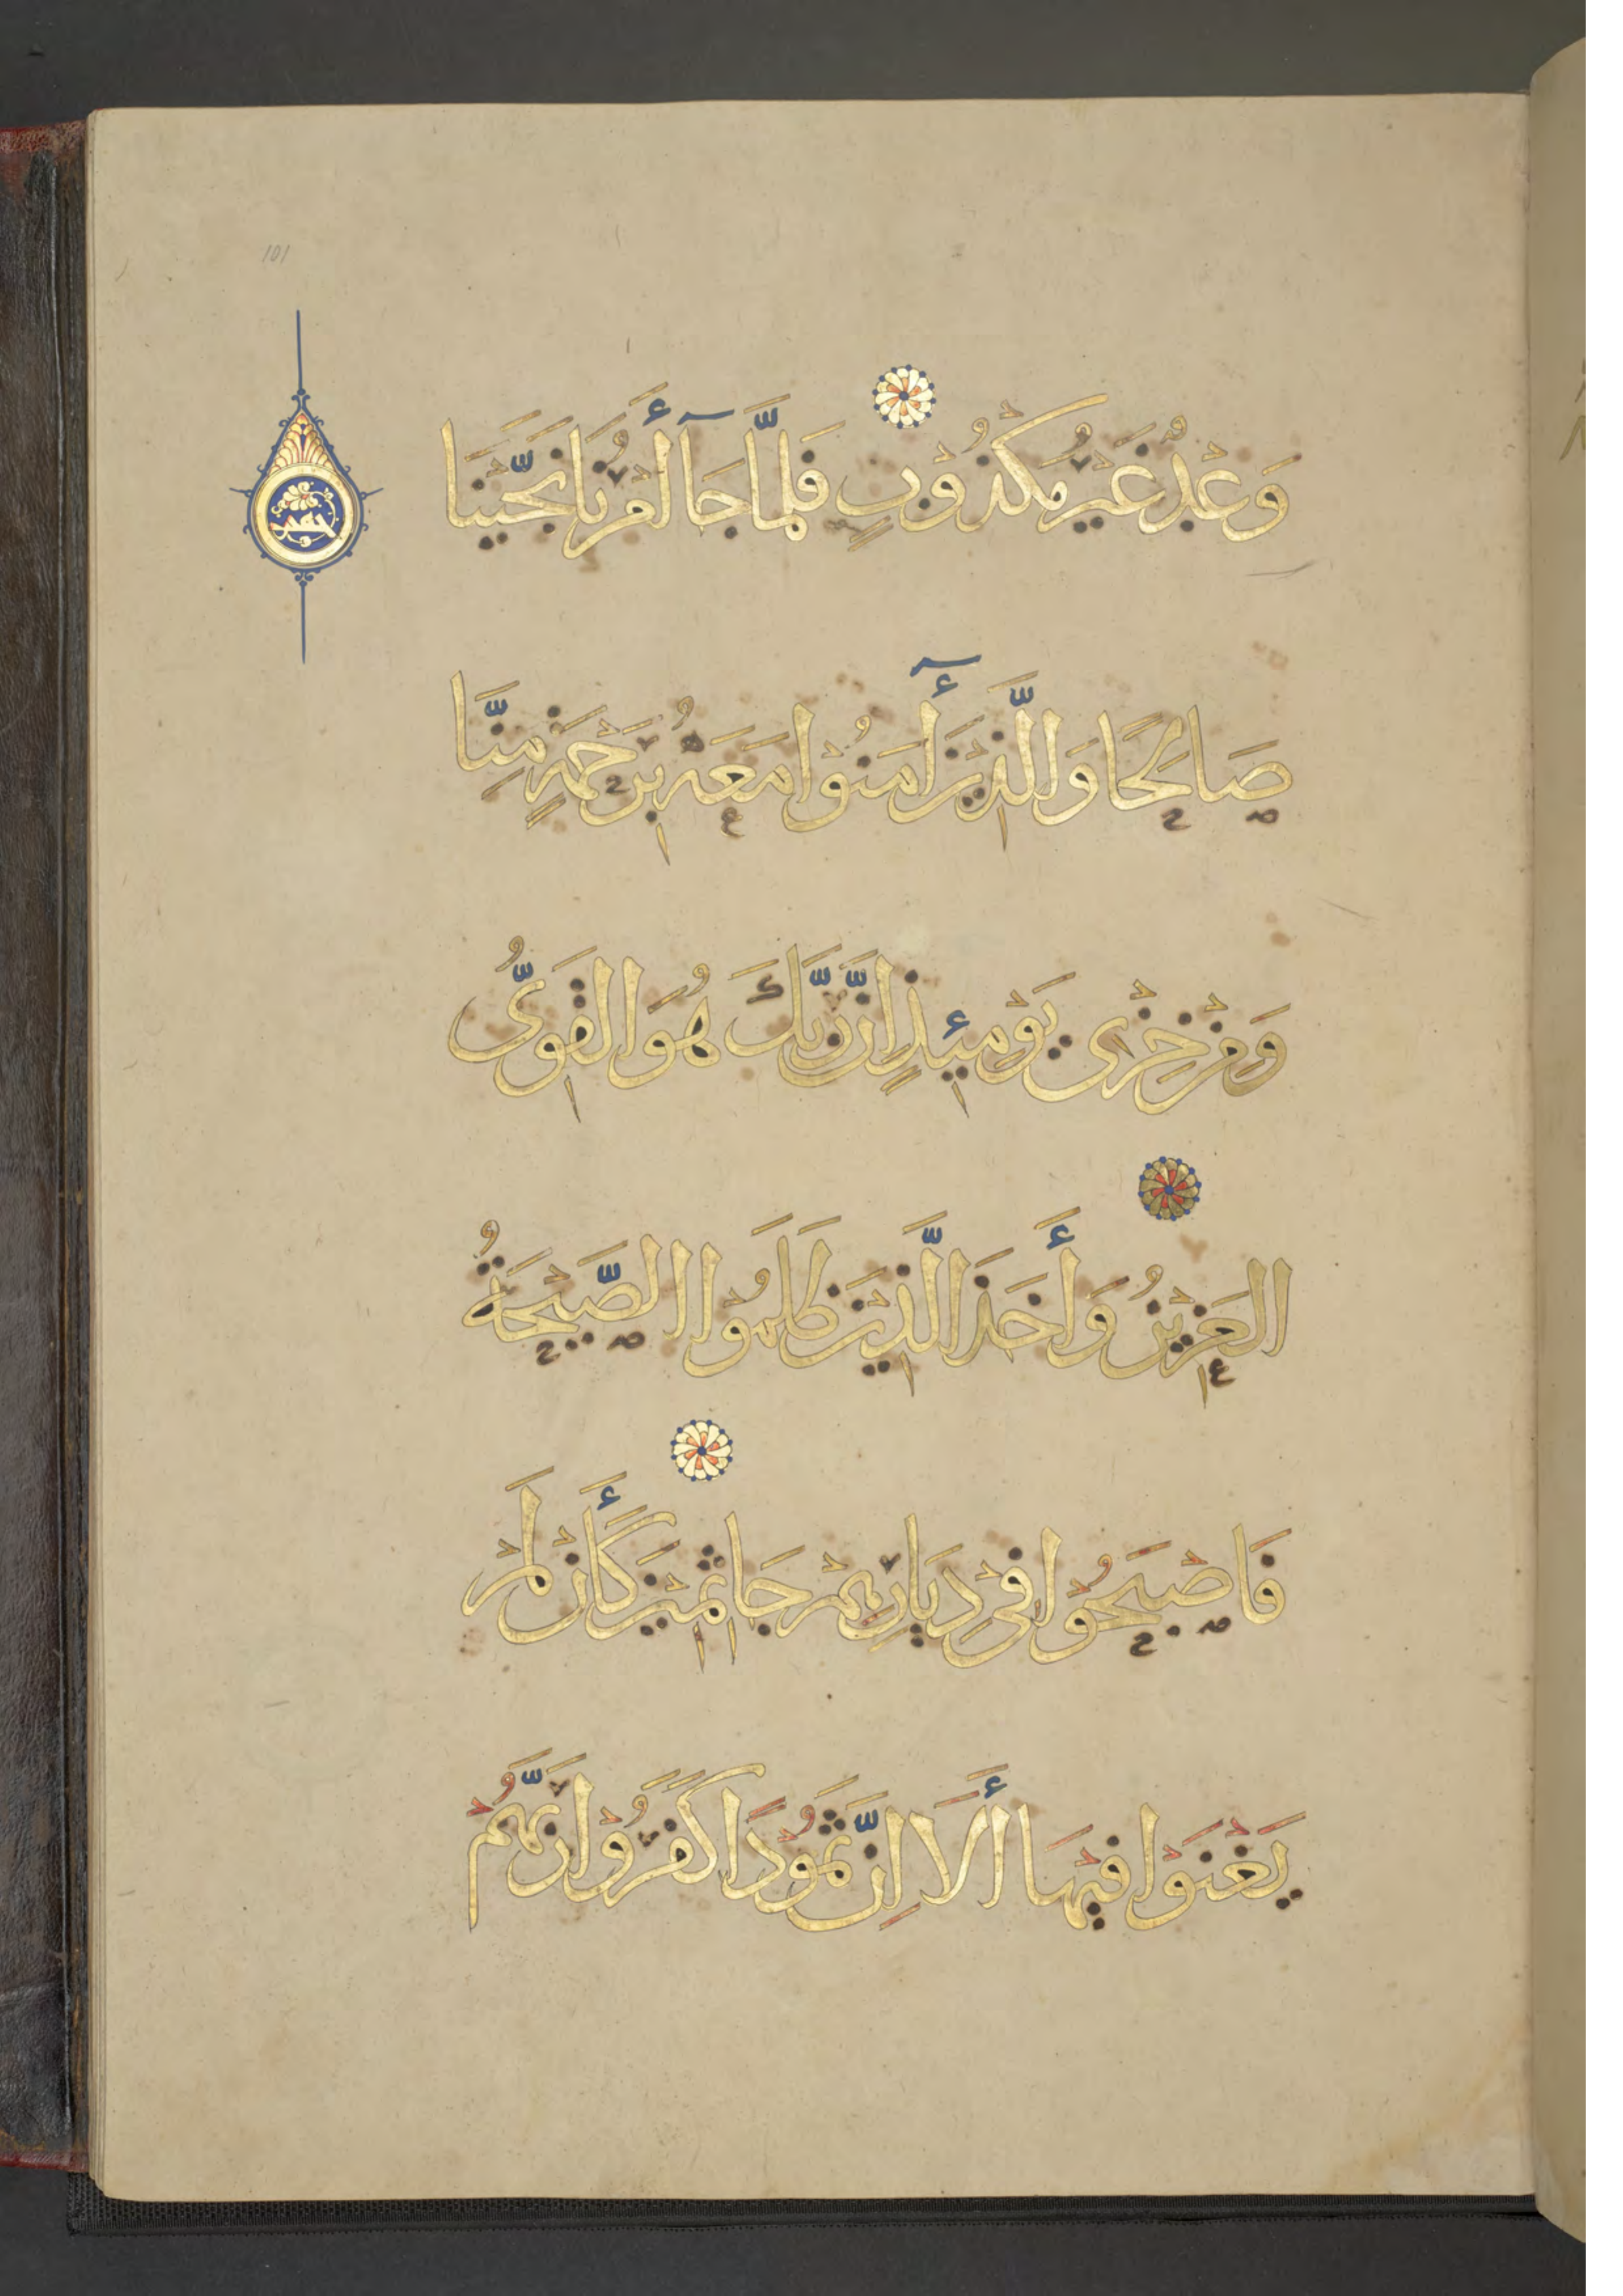 101
وَعْدٌ غَيْرُ مَكْذُوْبٍ فَلَمَّا جَآ أَمْرُنَا نَجَّيْنَا
صَالِحًا وَالَّذِيْنَ أٓمَنُوْا مَعَهُ بِرَحْمَةٍ مِنَّا
وَمِنْ خِزْيِ يَوْمِئِذٍ اِنَّ رَبَّكَ هُوَ الْقَوِيُّ
الْعَزِيْزُ وَأَخَذَ الَّذِيْنَ ظَلَمُوْا الصَّيْحَةُ
فَاصْبَحُوْا فِيْ دِيَارِهِمْ جَاثِمِيْنَ كَأَنْ لَمْ
يَغْنَوْا فِيْهَا أَلَا اِنَّ ثَمُوْدًا كَفَرُوْا رَبَّهُمْ